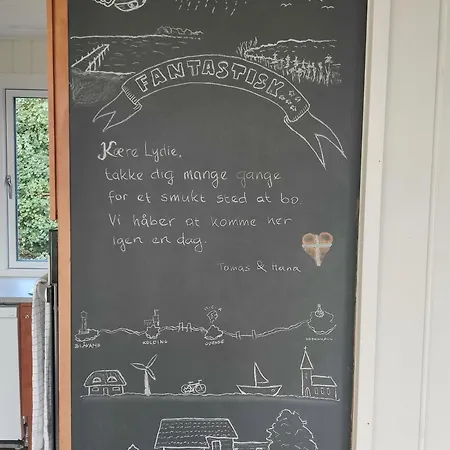 FANTASTISK
Kære Lydie,
takke dig mange gange
for et smukt sted at bo.
Vi håber at komme her
igen en dag.
Tomas & Hana
BLÅVAND
KOLDING
ODENSE